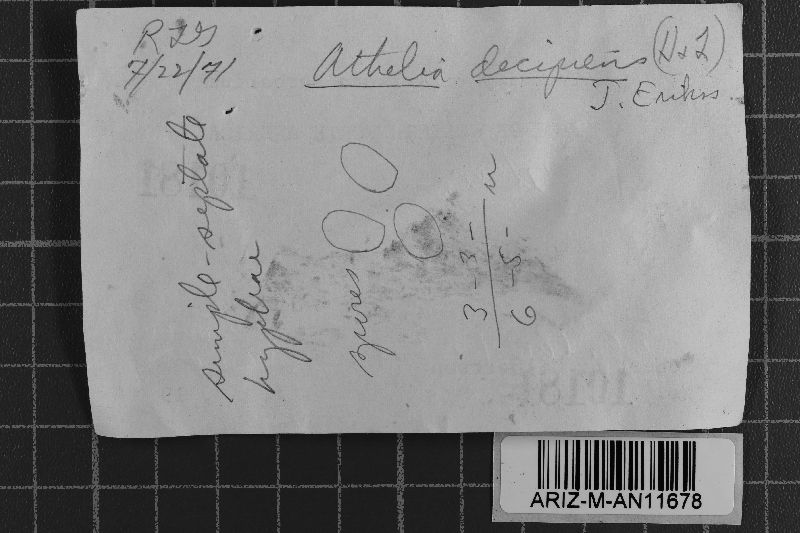 RLG
7/22/71
Athelia decipiens (H & L)
J. Erikss.
simple-septate
hyphae
spores
3-3-
6-5- u
ARIZ-M-AN11678